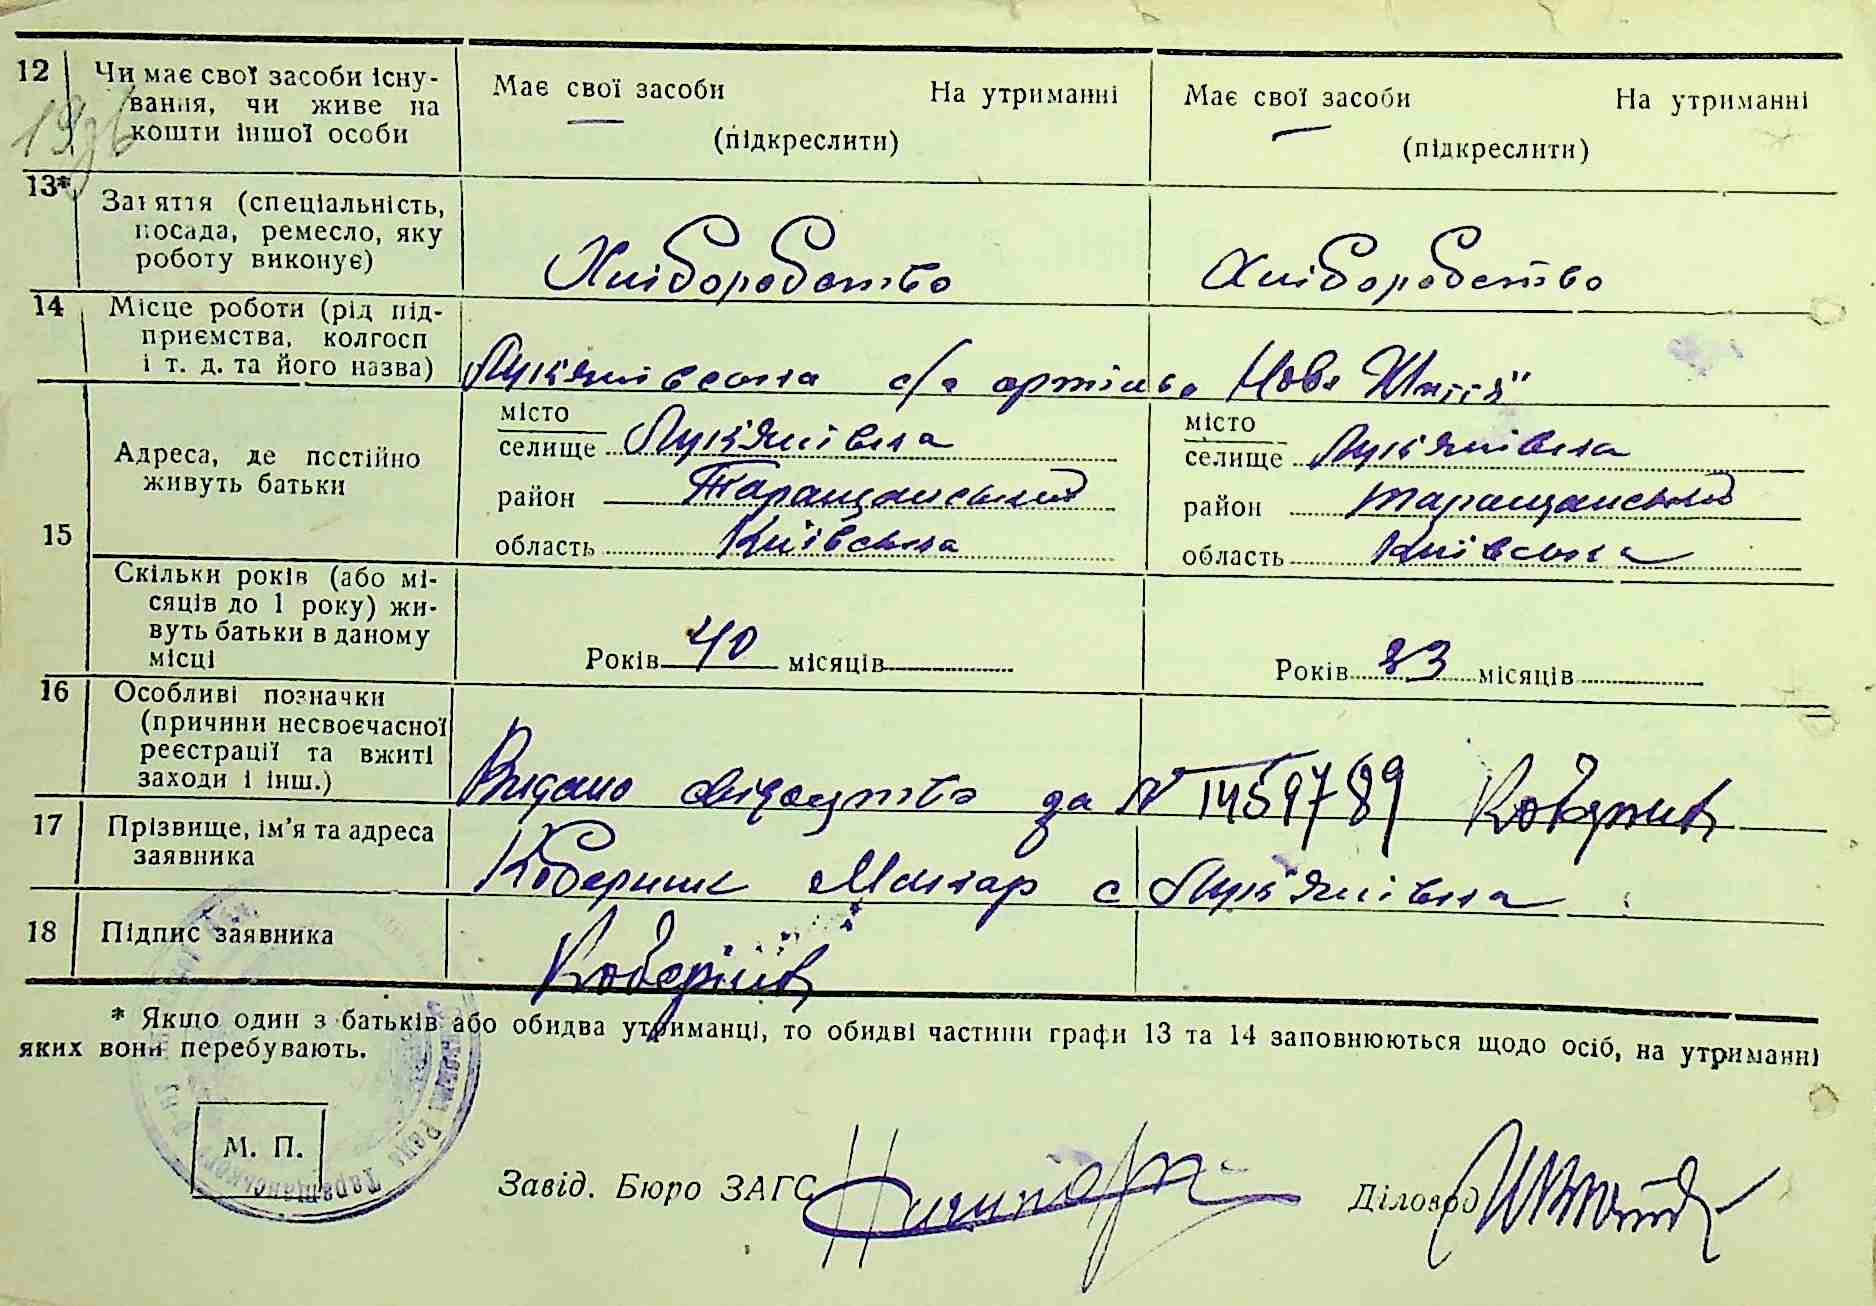 12 Чи має свої засоби існу-
вання, чи живе на
кошти іншої особи
Має свої засоби На утриманні
(підкреслити)
Має свої засоби На утриманні
(підкреслити)
13* Заняття (спеціальність,
посада, ремесло, яку
роботу виконує)
Хліборобство
Хліборобство
14 Місце роботи (рід під-
приємства, колгосп
і т. д. та його назва)
Лук'янівська с/г артіль Нове Життя"
15 Адреса, де постійно
живуть батьки
місто
селище Лук'янівка
район Таращанський
область Київська
місто
селище Лук'янівка
район Таращанський
область Київська
Скільки років (або мі-
сяців до 1 року) жи-
вуть батьки в даному
місці
Років 40 місяців
Років 33 місяців
16 Особливі позначки
(причини несвоєчасної
реєстрації та вжиті
заходи і інш.)
Видано свідоцтво за № 1459789
17 Прізвище, ім'я та адреса
заявника
Кобериник Макар с Лук'янівка
18 Підпис заявника
* Якщо один з батьків або обидва утриманці, то обидві частини графи 13 та 14 заповнюються щодо осіб, на утриманні
яких вони перебувають.
М. П.
Рада Таращанського
Завід. Бюро ЗАГС
Діловод